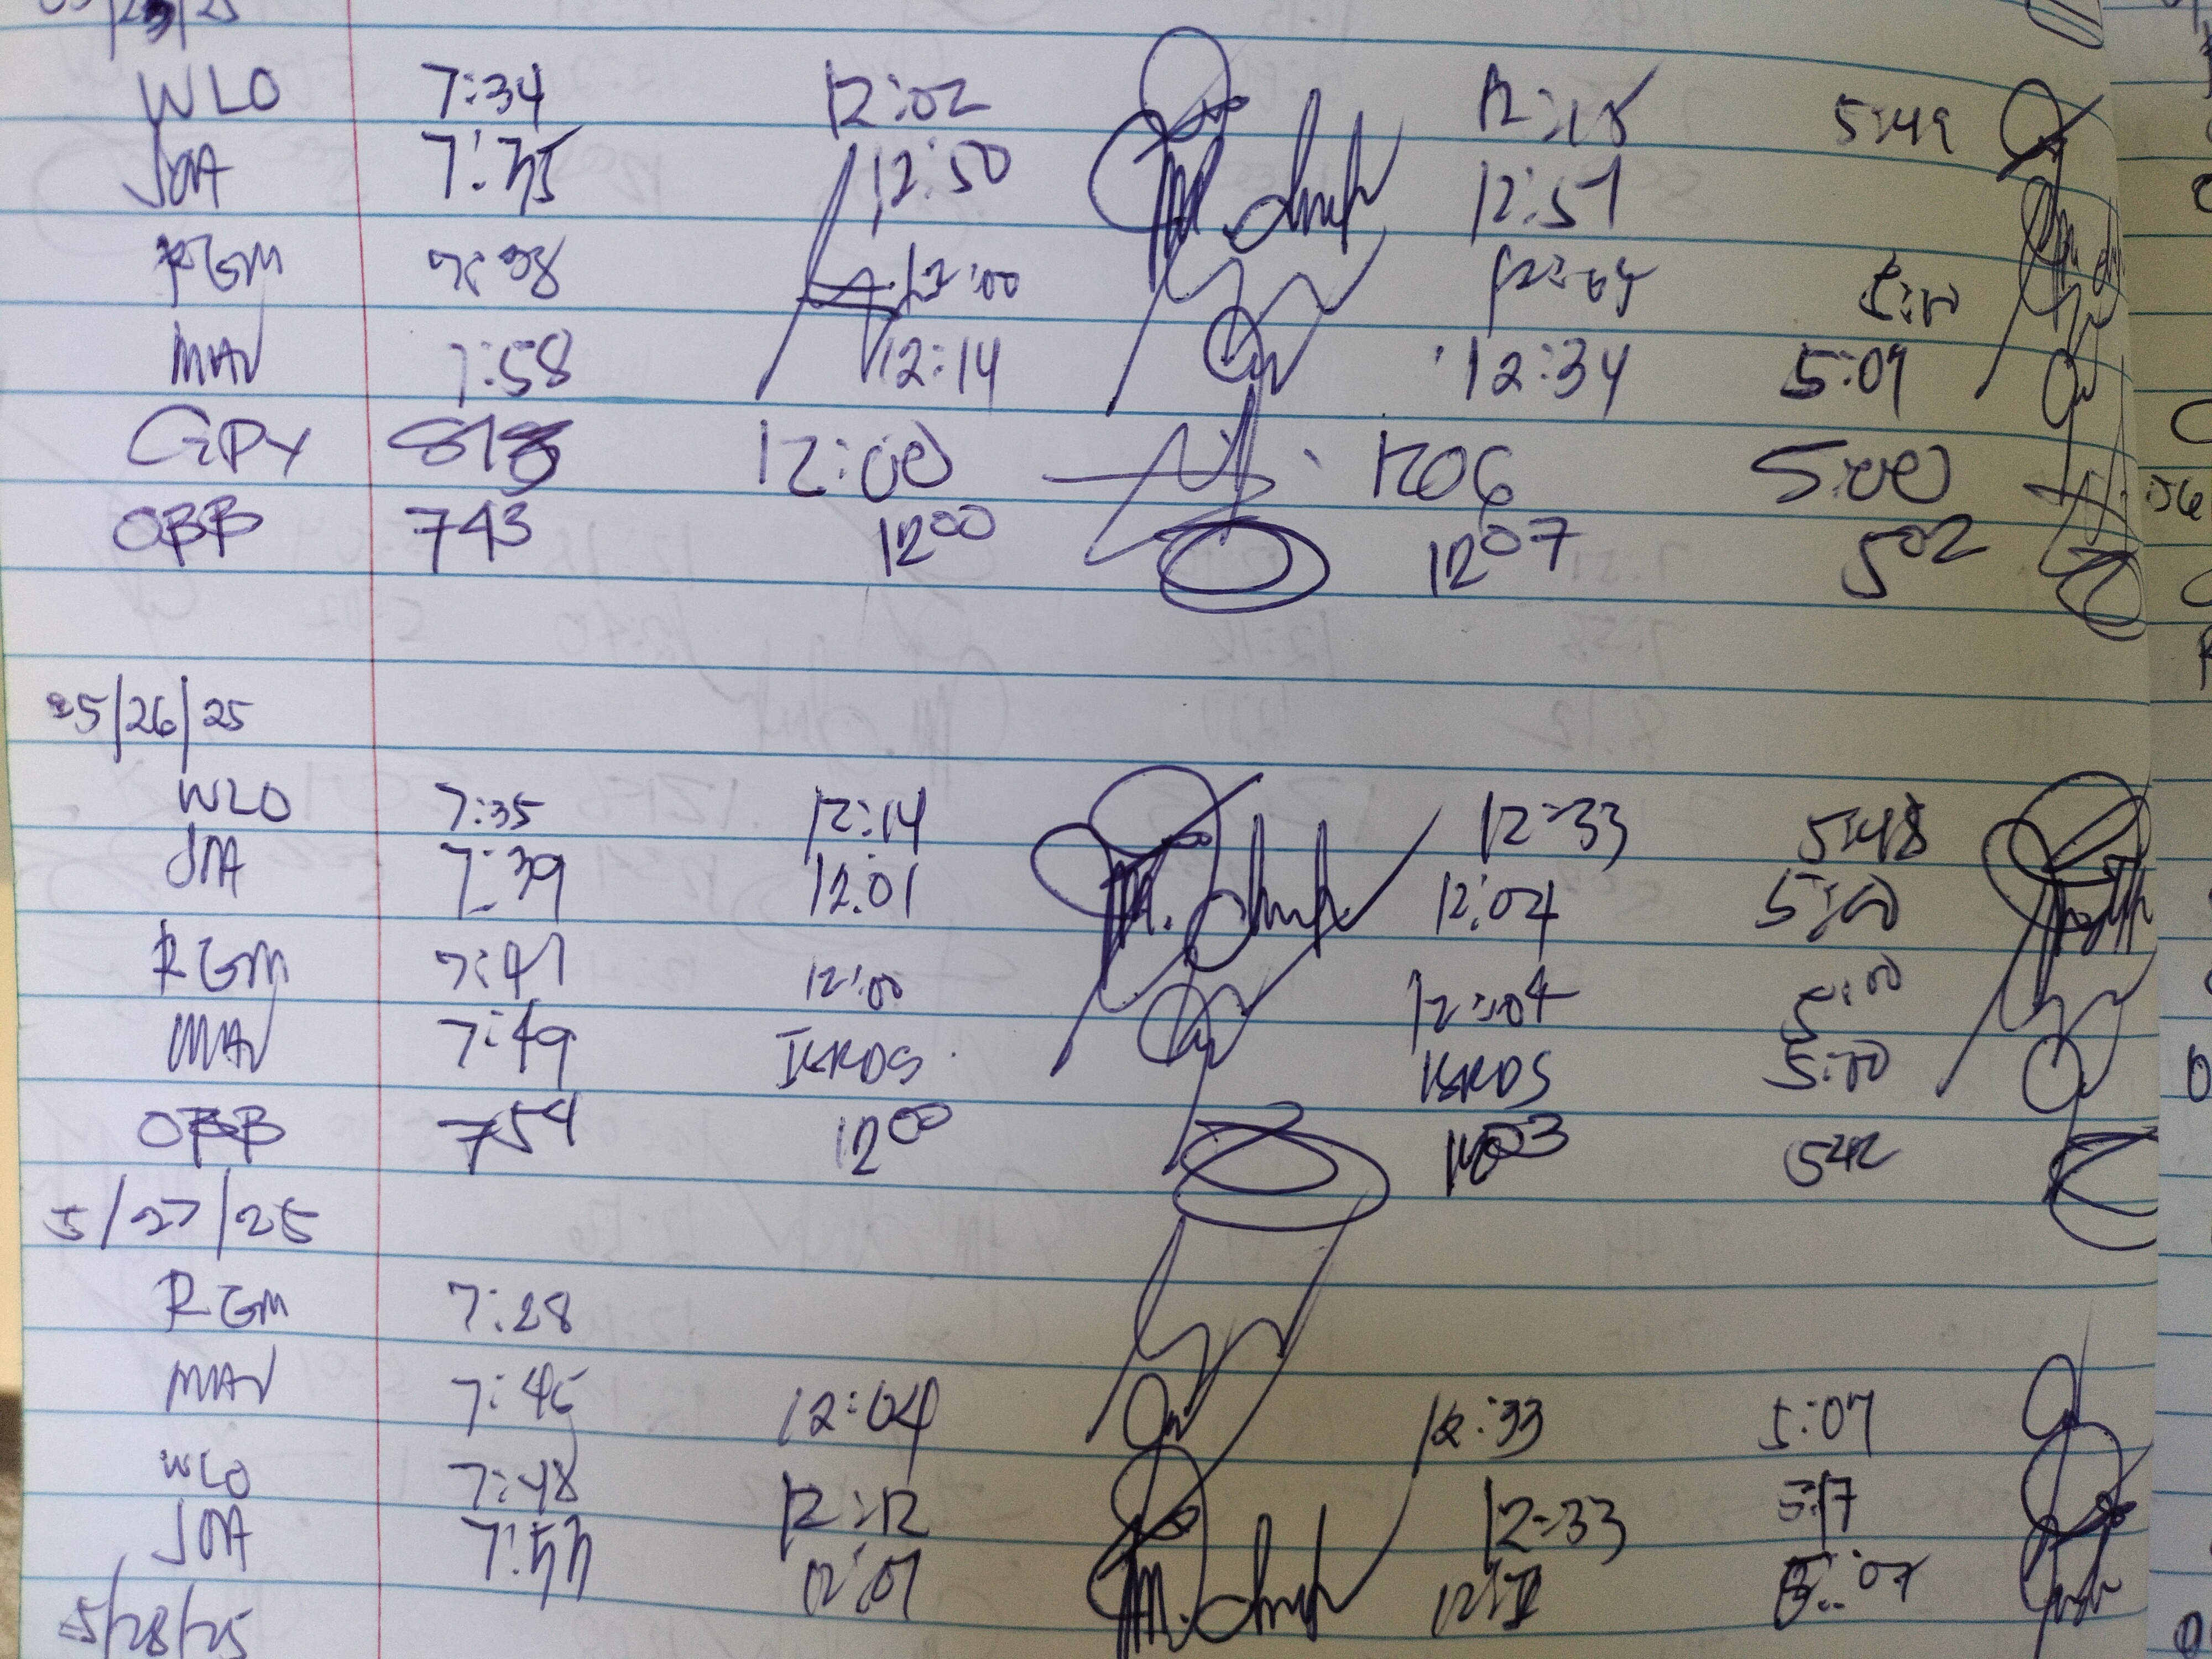 WLO 7:34 12:02 12:15 5:49
JOA 7:35 12:50 12:57
RGM 7:38 12:00 12:04 5:00
MAV 7:58 12:14 12:34 5:09
GPY 12:00 1206 5:00
OBB 743 1200 1207 502
5/26/25
WLO 7:35 12:14 12:33 5:48
JOA 7:39 12.01 12:04 5:00
RGM 7:41 12:00 12:04 5:00
MAV 7:49 5:00
OBB 754 1200 1203 542
5/27/25
RGM 7:28
MAV 7:45 12:04 12:33 5:07
WLO 7:48 12:12 12:33 5:17
JOA 7:53 12:07 5:07
5/28/25